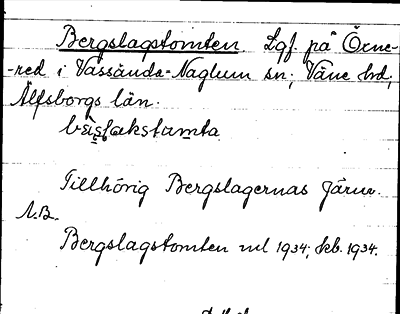 Bergslagstomten. Lgf. på Öxne-
-red i Vassända-Naglum sn; Väne hd,
Älfsborgs län.
Tillhörig Bergslagernas Järnv.
N.B.
Bergslagstomten ml 1934; kb. 1934.